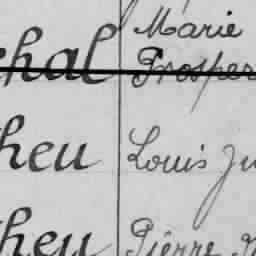 Marie
chal Prosper
heu Louis Ju
heu Pierre